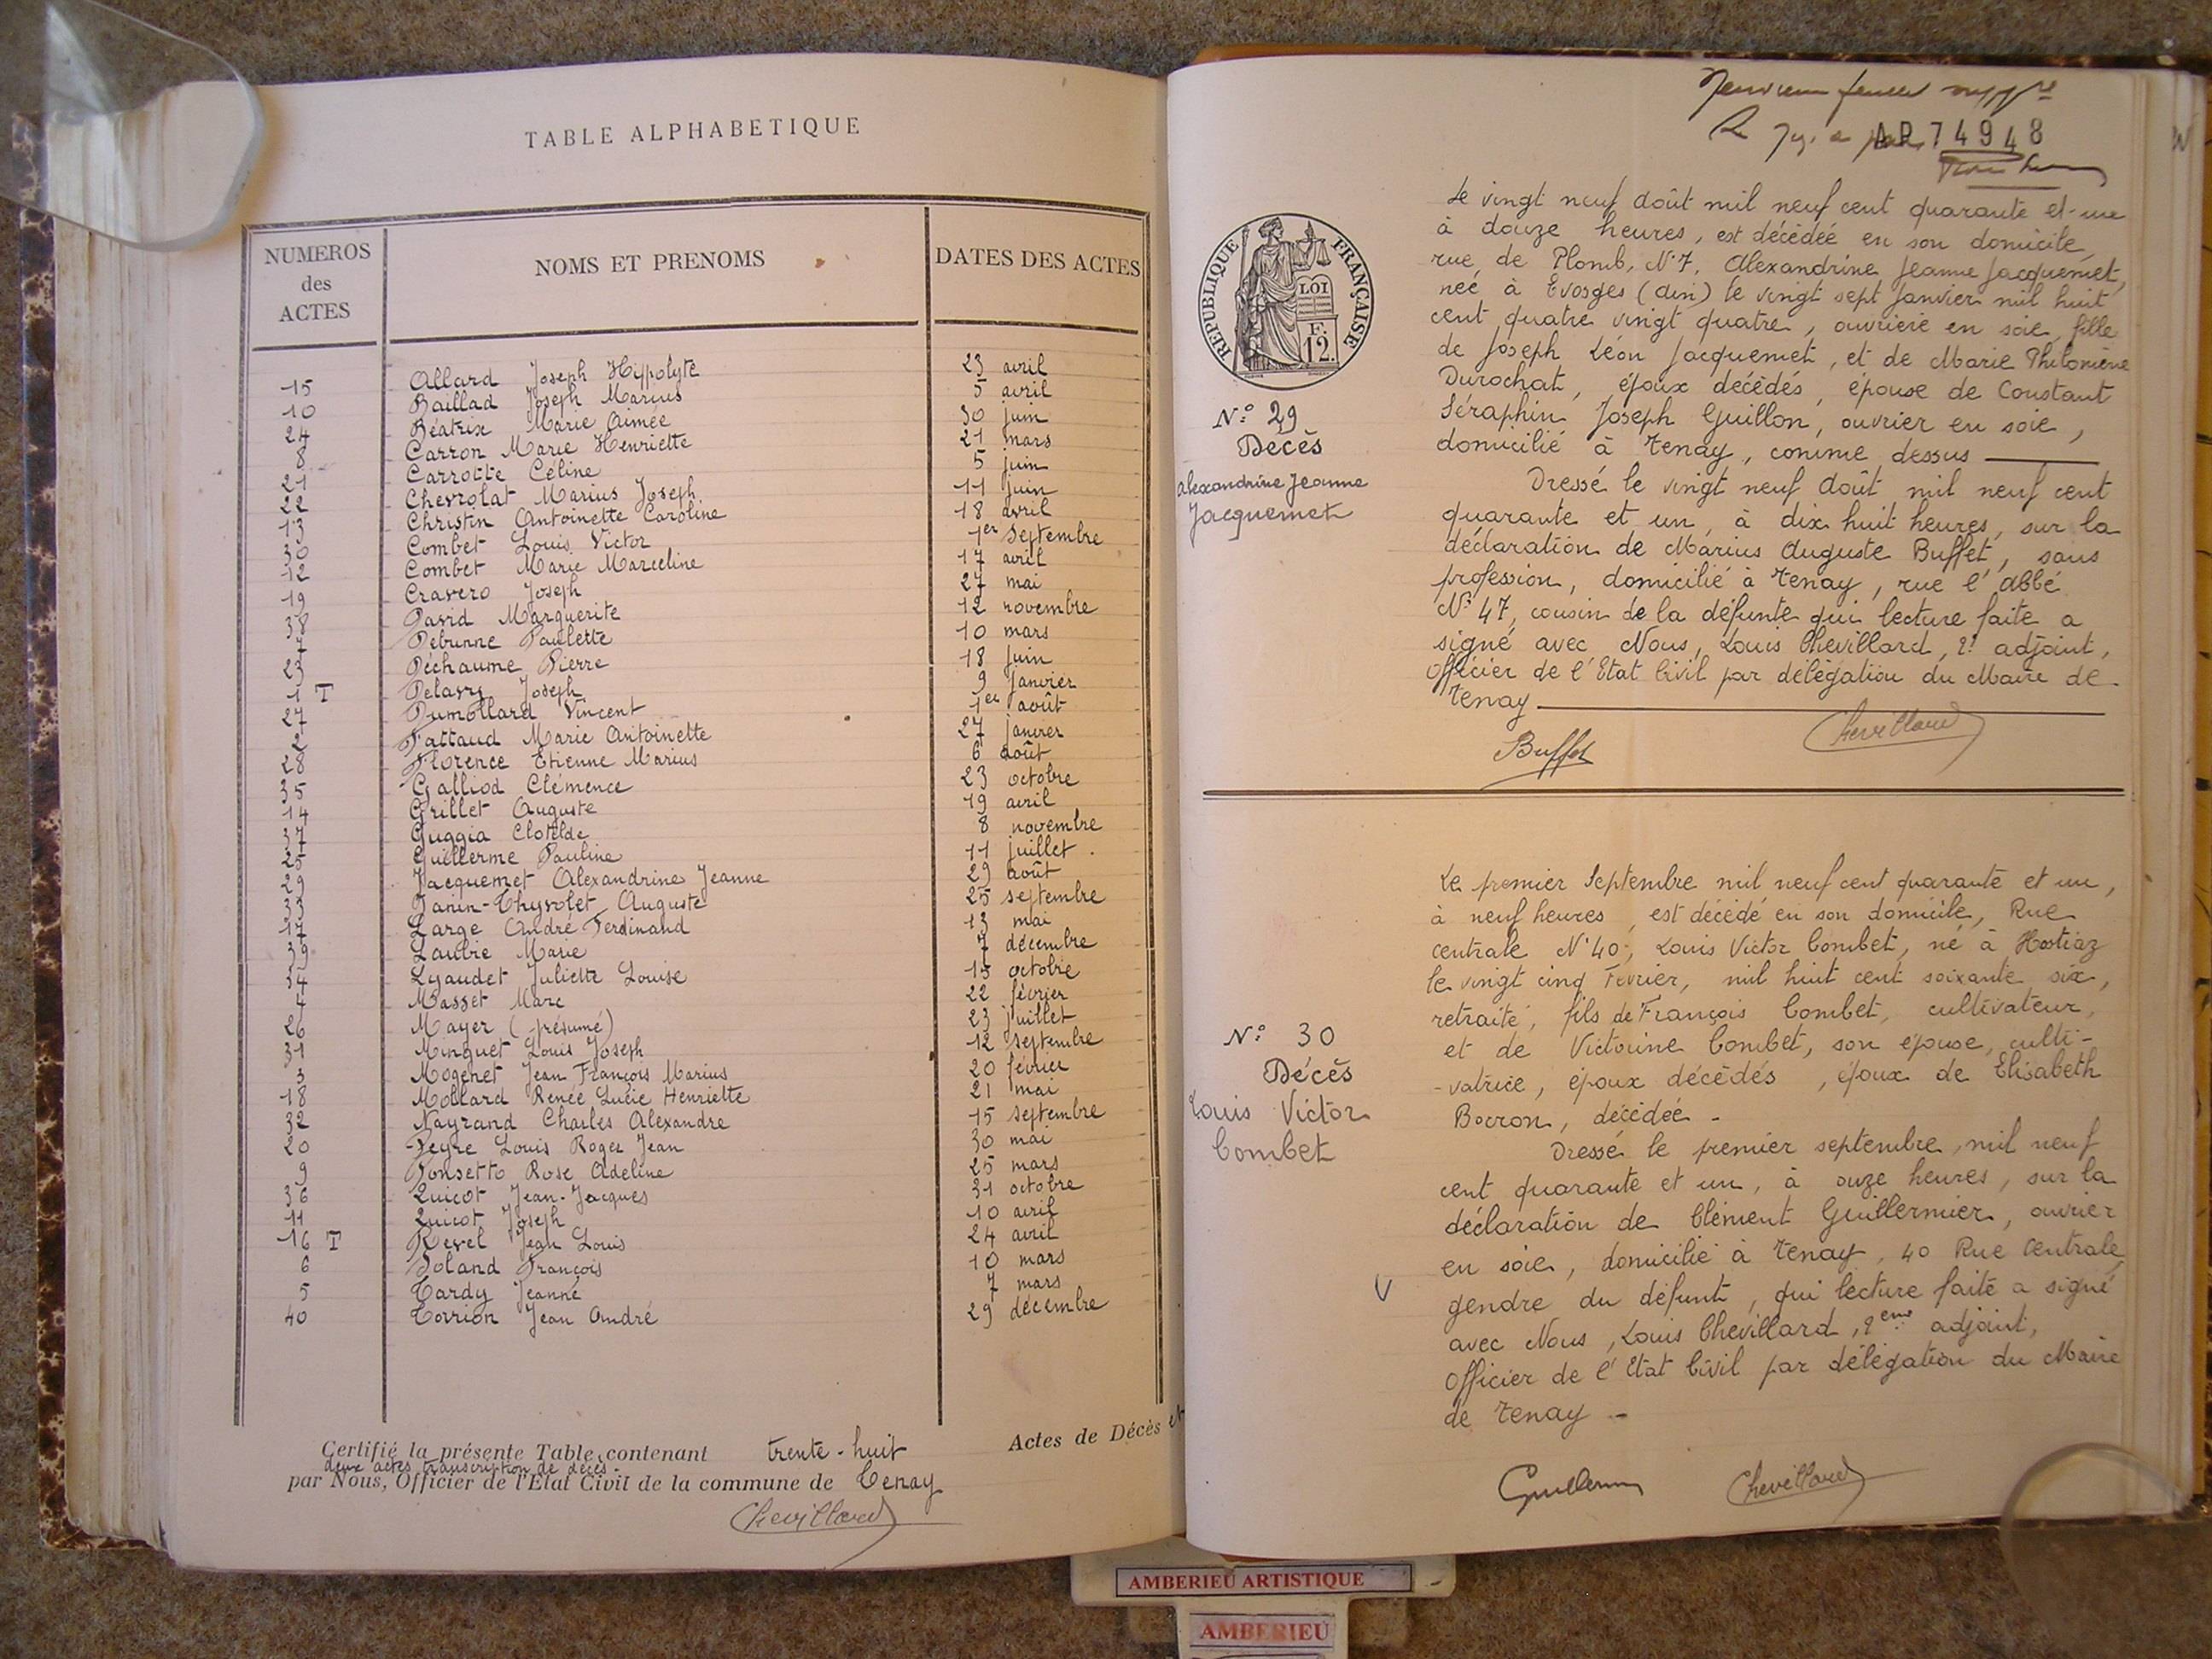 TABLE ALPHABETIQUE
NUMEROS des ACTES NOMS ET PRENOMS DATES DES ACTES
15 Allard Joseph Hippolyte 23 avril
10 Baillad Joseph Marius 5 avril
24 Béatrix Marie Aimée 30 juin
8 Carron Marie Henriette 21 mars
21 Carrotte Céline 5 juin
22 Chevrolat Marius Joseph 11 juin
13 Christin Antoinette Caroline 18 avril
30 Combet Louis Victor 1er septembre
12 Combet Marie Marceline 17 avril
19 Cravero Joseph 27 mai
38 David Marguerite 12 novembre
7 Debunne Paulette 10 mars
23 Déchaume Pierre 18 juin
1 T Delavy Joseph 9 janvier
27 Dumollard Vincent 1er août
2 Fattaud Marie Antoinette 27 janvier
28 Florence Etienne Marius 6 août
35 Galliod Clémence 23 octobre
14 Grillet Auguste 19 avril
37 Guggia Clotilde 8 novembre
25 Guillerme Pauline 11 juillet .
29 Jacquemet Alexandrine Jeanne 29 août
33 Janin-Thyvolet Auguste 25 septembre
17 Large André Ferdinand 13 mai
39 Laubie Marie 7 décembre
34 Lyaudet Juliette Louise 15 octobre
4 Masset Marc 22 février
26 Mayer (présumé) 23 juillet
31 Minguet Louis Joseph 12 septembre
3 Mogenet Jean François Marius 20 février
18 Mollard Renée Lucie Henriette 21 mai
32 Nayrand Charles Alexandre 15 septembre
20 Peyre Louis Roger Jean 30 mai
9 Ponsetto Rose Adeline 25 mars
36 Quicot Jean-Jacques 31 octobre
11 Quicot Joseph 10 avril
16 T Revel Jean Louis 24 avril
6 Soland François 10 mars
5 Tardy Jeanne 7 mars
40 Torrion Jean André 29 décembre
Certifié la présente Table contenant trente-huit Actes de Décès et
deux actes transcription de décès.
par Nous, Officier de l'Etat Civil de la commune de Tenay
Chevillard
AP 74948
REPUBLIQUE FRANÇAISE
LOI
F.
12.
N° 29
Décès
Alexandrine Jeanne
Jacquemet
Le vingt neuf août mil neuf cent quarante et un
à douze heures, est décédée en son domicile,
rue de Plomb, N°7, Alexandrine Jeanne Jacquemet,
née à Evosges (Ain) le vingt sept Janvier mil huit
cent quatre vingt quatre, ouvrière en soie, fille
de Joseph Léon Jacquemet, et de Marie Philomène
Durochat, époux décédés, épouse de Constant
Séraphin Joseph Guillon, ouvrier en soie,
domicilié à Tenay, comme dessus
Dressé le vingt neuf Août mil neuf cent
quarante et un, à dix huit heures, sur la
déclaration de Marius Auguste Buffet, sans
profession, domicilié à Tenay, rue l'Abbé
N° 47, cousin de la défunte qui lecture faite a
signé avec Nous, Louis Chevillard, 2e adjoint,
Officier de l'Etat Civil par délégation du Maire de
Tenay
Buffet Chevillard
N° 30
Décès
Louis Victor
Combet
Le premier Septembre mil neuf cent quarante et un,
à neuf heures, est décédé en son domicile, Rue
centrale N°40, Louis Victor Combet, né à Hostiaz
le vingt cinq Février, mil huit cent soixante six,
retraité, fils de François Combet, cultivateur,
et de Victorine Combet, son épouse, culti-
-vatrice, époux décédés, époux de Elisabeth
Borron, décédée -
Dressé le premier septembre, mil neuf
cent quarante et un, à onze heures, sur la
déclaration de Clément Guillermier, ouvrier
en soie, domicilié à Tenay, 40 Rue Centrale,
gendre du défunt, qui lecture faite a signé
avec Nous, Louis Chevillard, 2eme adjoint,
Officier de l'Etat Civil par délégation du Maire
de Tenay -
Chevillard
AMBERIEU ARTISTIQUE
AMBERIEU